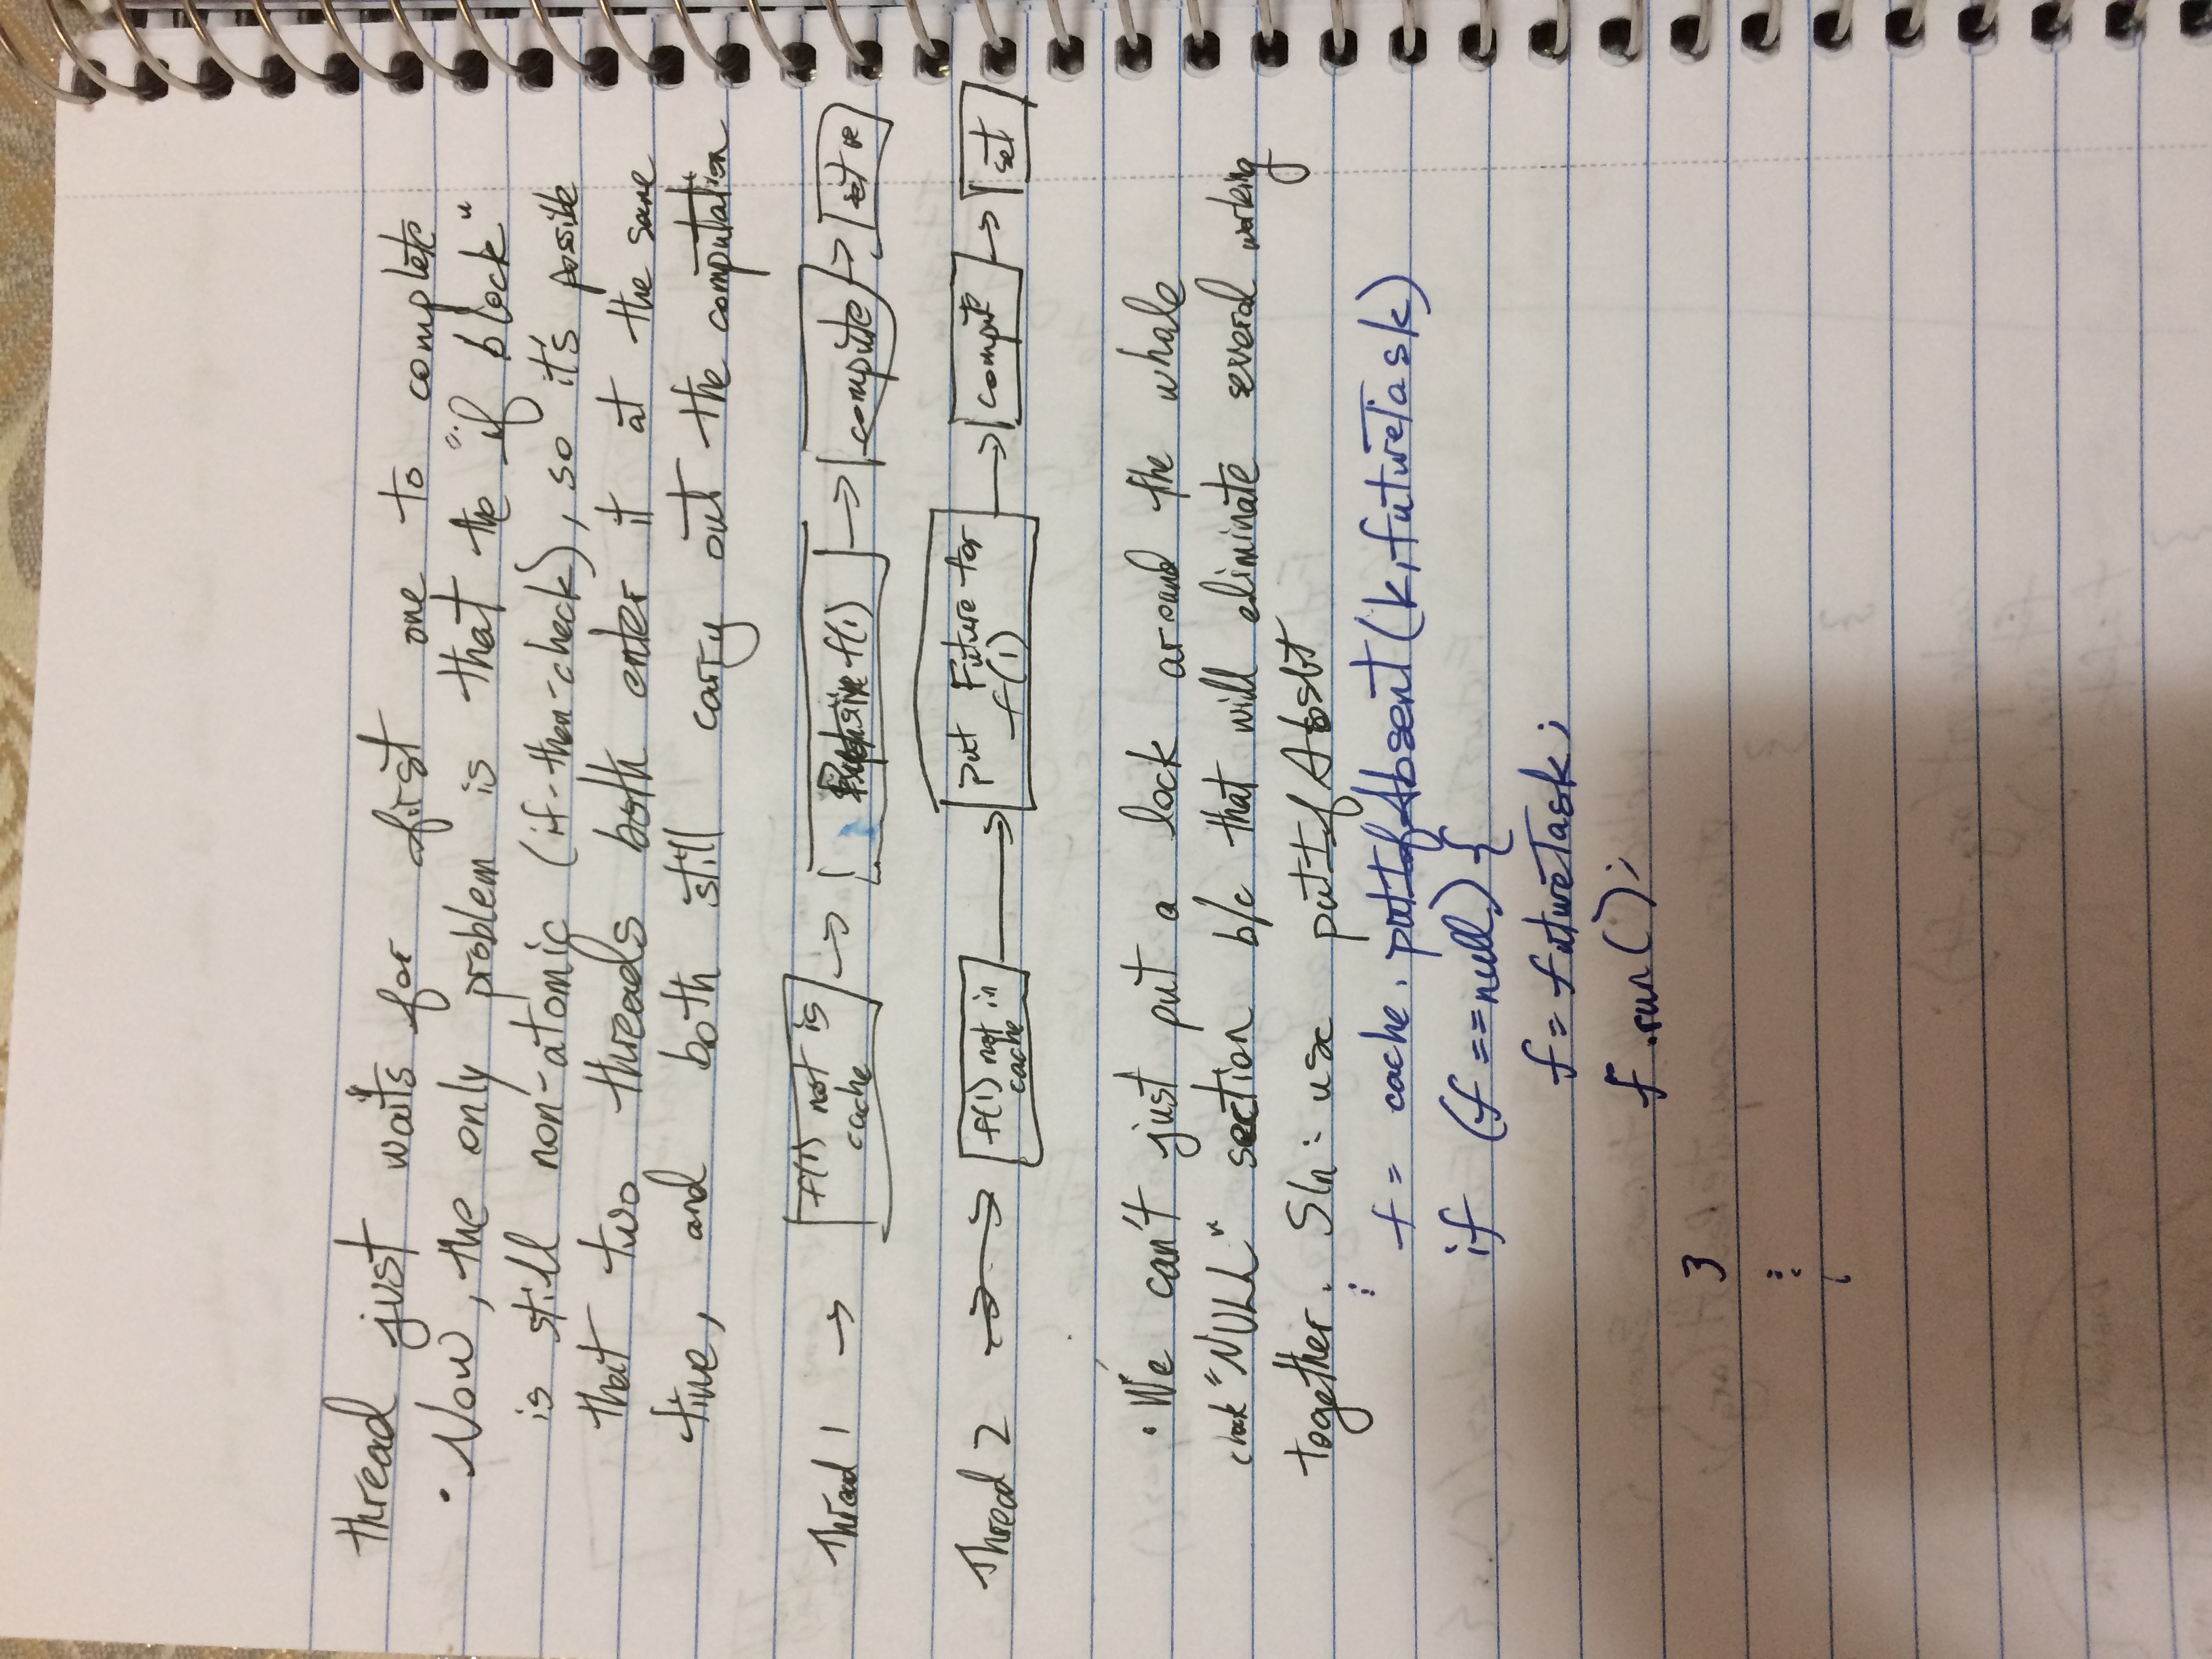 thread just waits for first one to complete
• Now, the only problem is that the "if block"
is still non-atomic (if-then-check), so it's possible
that two threads both enter it at the same
time, and both still carry out the computation
Thread 1 → f(1) not is → f(1) → compute → set
cache
Thread 2 → f(1) not in → put Future for → compute → set
cache f(1)
• We can't just put a lock around the whole
check "NULL" section b/c that will eliminate several working
together. Sln: use putIfAbsbt
f = cache.putIfAbsent(k, futureTask)
if (f == null) {
f = futureTask;
f.run();
}